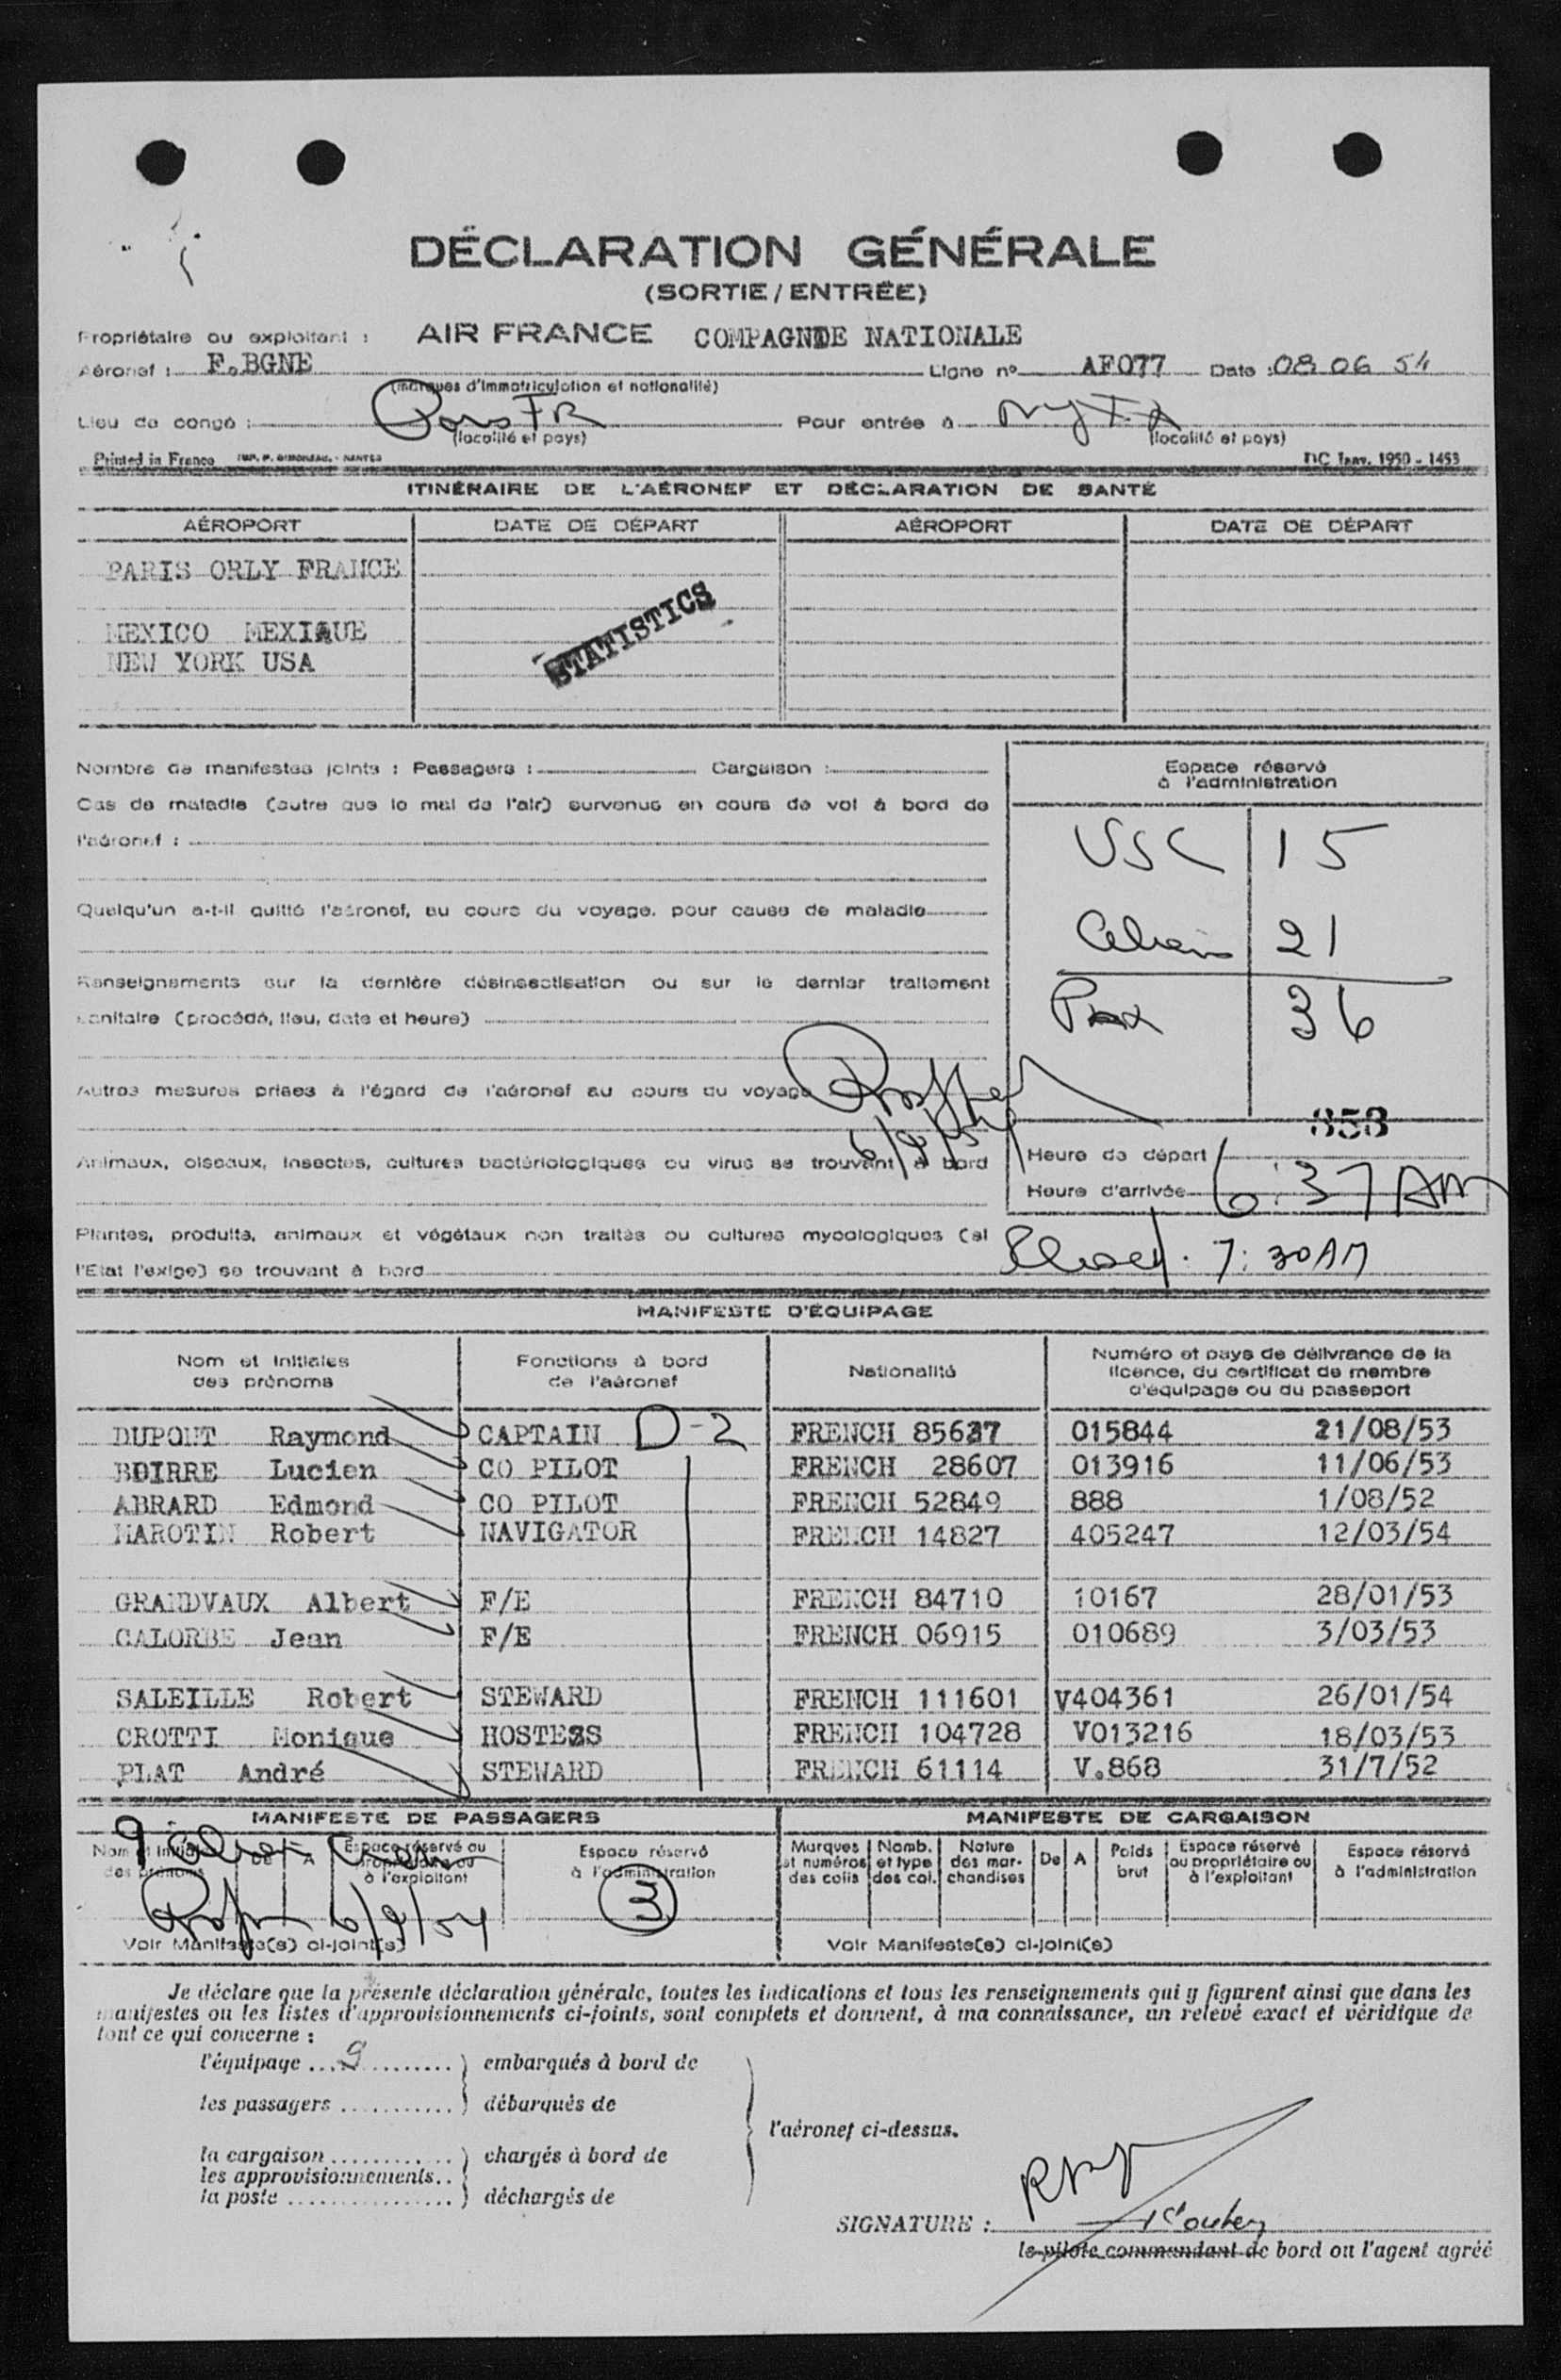 DÉCLARATION GÉNÉRALE
(SORTIE/ENTRÉE)
Propriétaire ou exploitant : AIR FRANCE COMPAGNIE NATIONALE
Aéronef : F.BGNE Ligne nº AF077 Date : 08 06 54
(marques d'immatriculation et nationalité)
Lieu de congé : Paris FR Pour entrée à
(localité et pays) (localité et pays)
Printed in France IMP. P. NANTES DC Janv. 1950 - 1453
ITINÉRAIRE DE L'AÉRONEF ET DÉCLARATION DE SANTÉ
AÉROPORT DATE DE DÉPART AÉROPORT DATE DE DÉPART
PARIS ORLY FRANCE
MEXICO MEXIQUE
NEW YORK USA
STATISTICS
Nombre de manifestes joints : Passagers : Cargaison :
Cas de maladie (autre que le mal de l'air) survenus en cours de vol à bord de
l'aéronef :
Quelqu'un a-t-il quitté l'aéronef, au cours du voyage, pour cause de maladie
Renseignements sur la dernière désinsectisation ou sur le dernier traitement
sanitaire (procédé, lieu, date et heure)
Autres mesures prises à l'égard de l'aéronef au cours du voyage
6/8/54
Animaux, oiseaux, insectes, cultures bactériologiques ou virus se trouvant à bord
Plantes, produits, animaux et végétaux non traités ou cultures mycologiques (si
l'Etat l'exige) se trouvant à bord
Espace réservé
à l'administration
USC 15
Aliens 21
Pax 36
353
Heure de départ
Heure d'arrivée 6:37 AM
7:30 AM
MANIFESTE D'ÉQUIPAGE
Nom et initiales
des prénoms
Fonctions à bord
de l'aéronef
Nationalité
Numéro et pays de délivrance de la
licence, du certificat de membre
d'équipage ou du passeport
DUPONT Raymond CAPTAIN D-2 FRENCH 85637 015844 21/08/53
BDIRRE Lucien CO PILOT FRENCH 28607 013916 11/06/53
ABRARD Edmond CO PILOT FRENCH 52849 888 1/08/52
MAROTIN Robert NAVIGATOR FRENCH 14827 405247 12/03/54
GRANDVAUX Albert F/E FRENCH 84710 10167 28/01/53
CALORBE Jean F/E FRENCH 06915 010689 3/03/53
SALEILLE Robert STEWARD FRENCH 111601 V404361 26/01/54
CROTTI Monique HOSTESS FRENCH 104728 V013216 18/03/53
PLAT André STEWARD FRENCH 61114 V.868 31/7/52
MANIFESTE DE PASSAGERS MANIFESTE DE CARGAISON
Nom et initiales
des prénoms
De A
Espace réservé au
propriétaire ou
à l'exploitant
Espace réservé
à l'administration
Marques
et numéros
des colis
Nomb.
et type
des col.
Nature
des mar-
chandises
De A
Poids
brut
Espace réservé
au propriétaire ou
à l'exploitant
Espace réservé
à l'administration
9
3
6/8/54
Voir Manifeste(s) ci-joint(s) Voir Manifeste(s) ci-joint(s)
Je déclare que la présente déclaration générale, toutes les indications et tous les renseignements qui y figurent ainsi que dans les
manifestes ou les listes d'approvisionnements ci-joints, sont complets et donnent, à ma connaissance, un relevé exact et véridique de
tout ce qui concerne :
l'équipage .... 9 ......... ) embarqués à bord de
les passagers ........... ) débarqués de
l'aéronef ci-dessus.
la cargaison ............ ) chargés à bord de
les approvisionnements..
la poste ................ ) déchargés de
SIGNATURE :
le pilote commandant de bord ou l'agent agréé